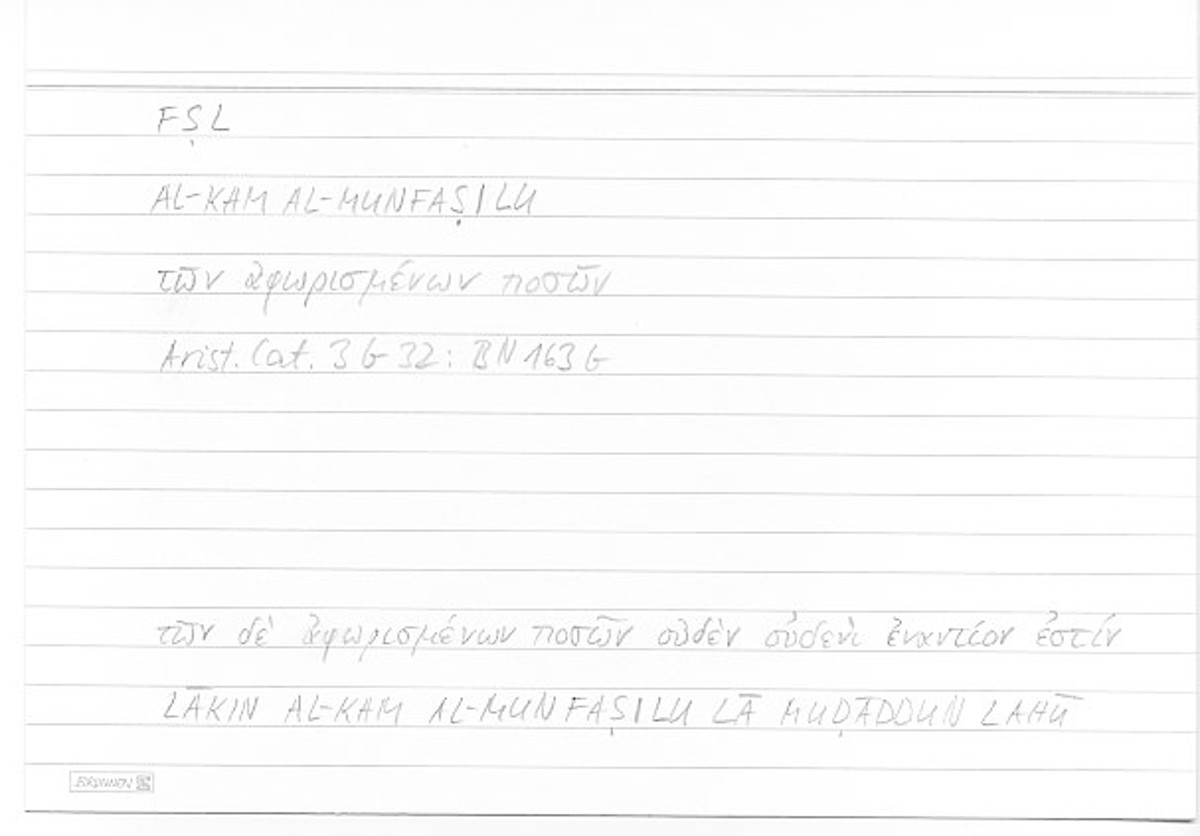 FṢL
AL-KAM AL-MUNFAṢILU
τῶν ἀφωρισμένων ποσῶν
Arist. Cat. 3 b 32: BN 163 b
τῶν δὲ ἀφωρισμένων ποσῶν οὐδὲν οὐδενὶ ἐναντίον ἐστίν
LĀKIN AL-KAM AL-MUNFAṢILU LĀ MUḌĀDDUN LAHŪ
BRUNNEN